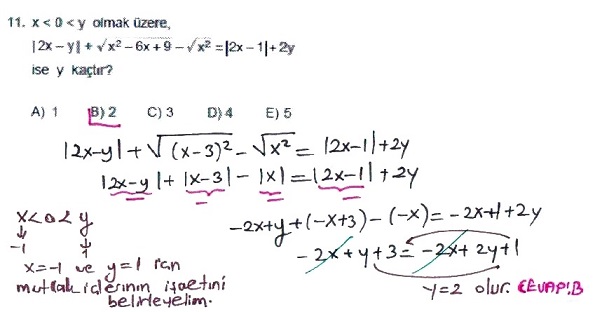 11. x < 0 < y olmak üzere,
|2x – y| + √x² – 6x + 9 – √x² = |2x – 1| + 2y
ise y kaçtır?
A) 1 B) 2 C) 3 D) 4 E) 5
|2x-y| + √(x-3)² - √x² = |2x-1| + 2y
|2x-y| + |x-3| - |x| = |2x-1| + 2y
x<0<y
-1 1
x=-1 ve y=1 için
mutlak içlerinin işaetini
belirleyelim.
-2x+y+(-x+3)-(-x) = -2x+1+2y
-2x+y+3 = -2x+2y+1
y=2 olur. CEVAP:B